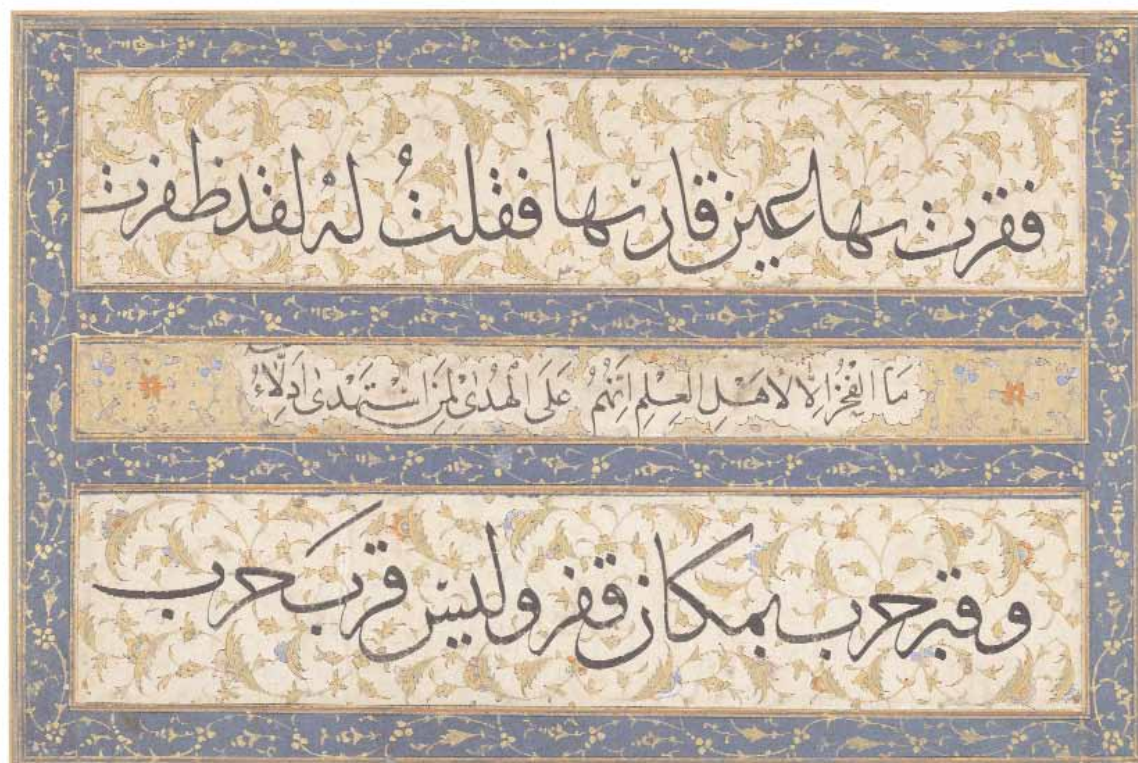 فقرت بها عين قاربها فقلتُ لهُ لقد ظفرت
مَا الفَخْرُ اِلّا لاَهْلِ العِلْمِ اِنَّهُمُ عَلَى الهُدٰى لِمَنِ اسْتَهْدٰى اَدِلّاءُ
وقبر حرب بمكان قفر وليس قرب حرب